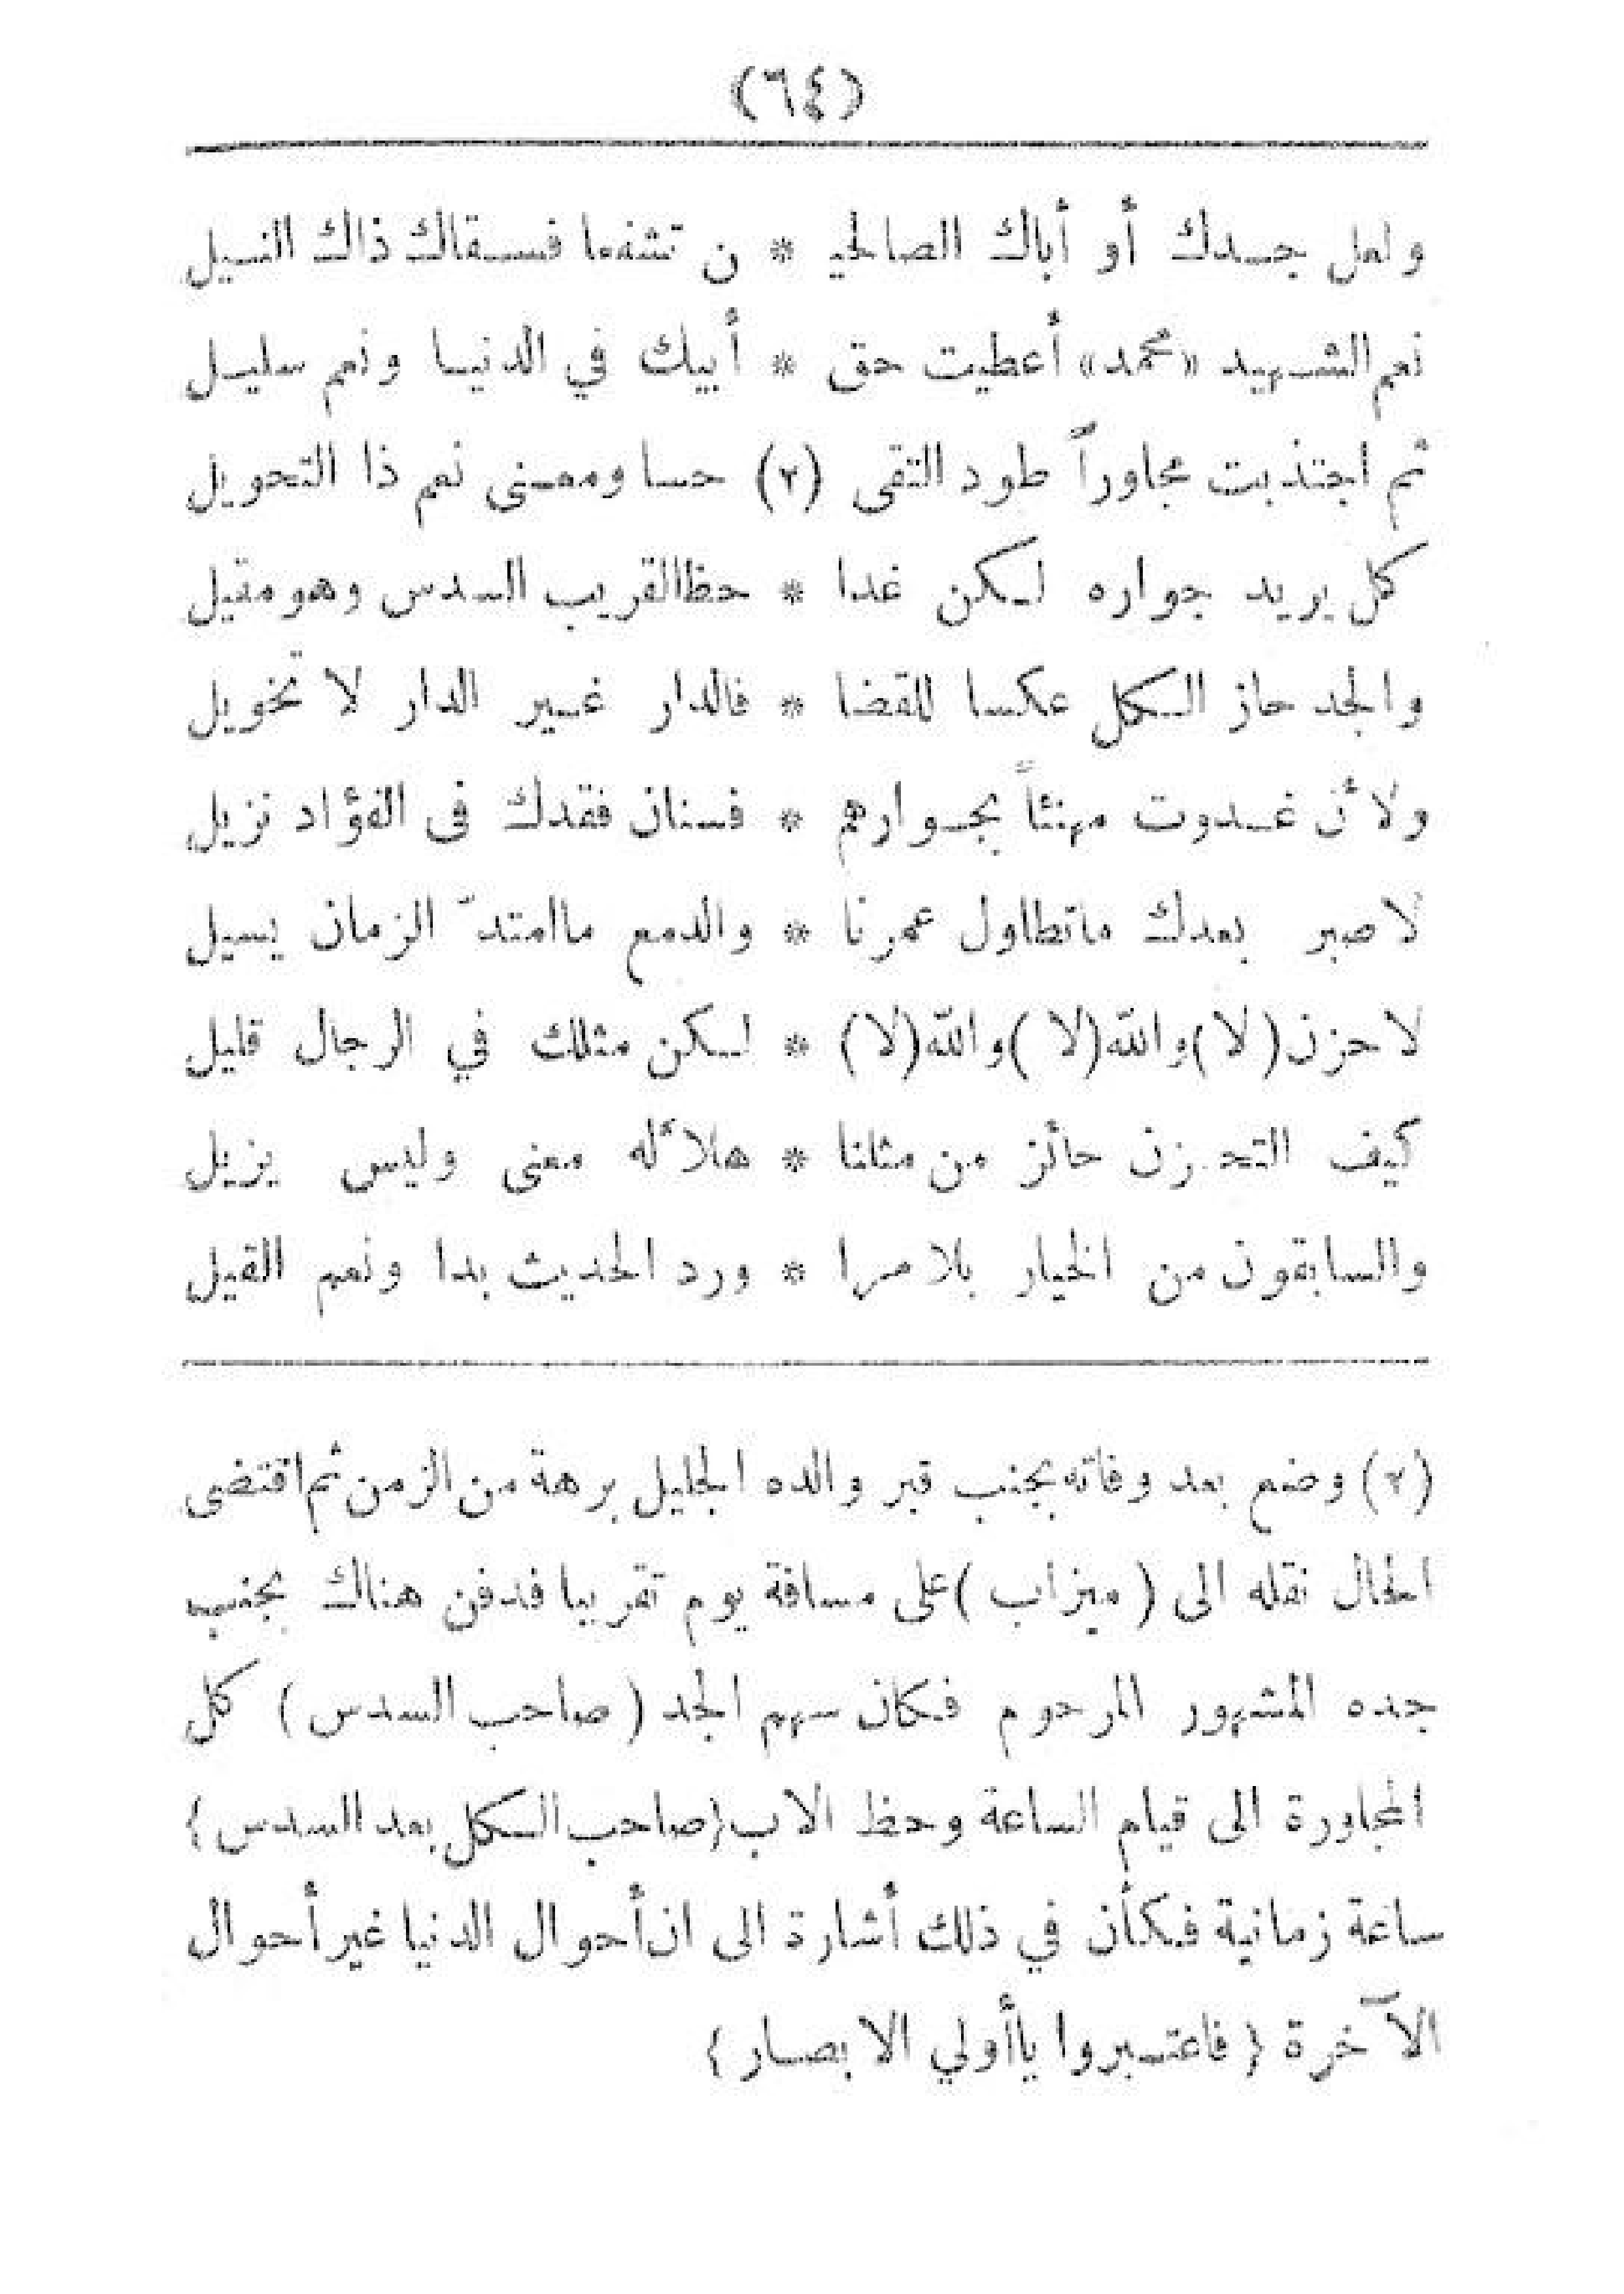 (٦٤)
ولعل جدك أو أباك الصالحي * ن تشفعا فسقاك ذاك النيل
نعم الشهيد «محمد» أعطيت حق * أبيك في الدنيا ونعم سليل
ثم اجتذبت مجاوراً طود التقى (٢) حسا ومعنى نعم ذا التحويل
كل يريد جواره لكن غدا * حظ القريب السدس وهو مقيل
والجد حاز الكل عكسا للقضا * فالدار غير الدار لا تخويل
ولأن غدوت مهنئاً بجوارهم * فسنان فقدك فى الفؤاد نزيل
لا صبر بعدك ما تطاول عمرنا * والدمع ما امتدّ الزمان يسيل
لا حزن (لا) والله (لا) والله (لا) * لكن مثلك في الرجال قليل
كيف التحزن حائز من مثلنا * هلا له معنى وليس يزيل
والسابقون من الخيار بلا مرا * ورد الحديث بدا ونعم القيل
(٢) وضع بعد وفاته بجنب قبر والده الجليل برهة من الزمن ثم اقتضى
الحال نقله الى (ميزاب) على مسافة يوم تقريبا فدفن هناك بجنب
جده المشهور المرحوم فكان سهم الجد (صاحب السدس) كل
المجاورة الى قيام الساعة وحظ الاب {صاحب الكل بعد السدس}
ساعة زمانية فكأن في ذلك أشارة الى ان أحوال الدنيا غير أحوال
الآخرة {فاعتبروا ياأولي الابصار}